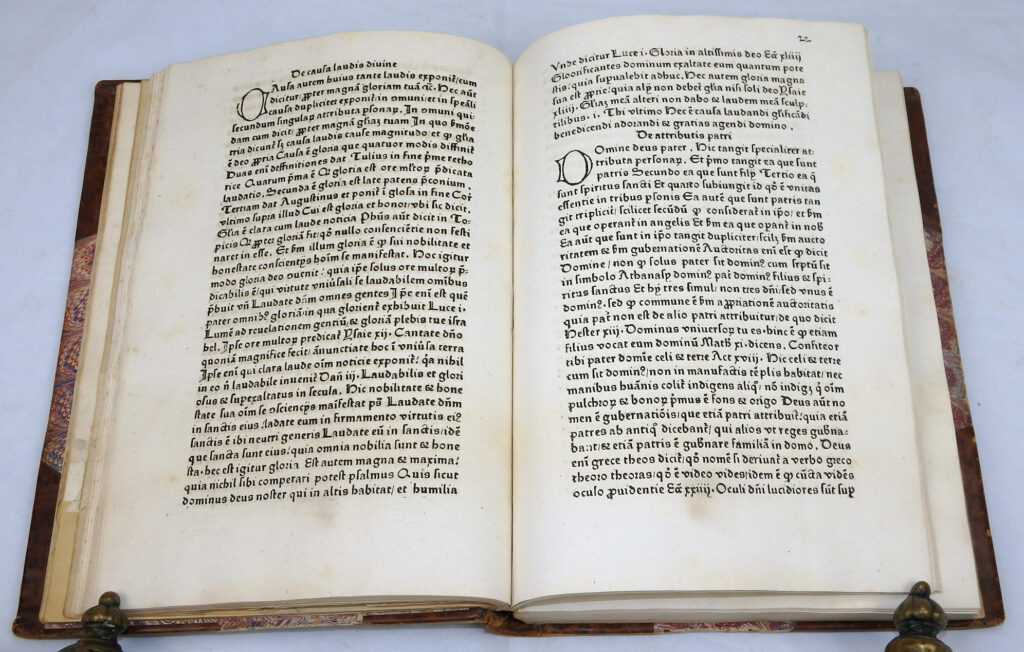 De causa laudis divine
Causa autem huius tante laudis exponit̃/cum
dicitur/ꝓpter magnã gloriam tuã ⁊c̃. Hec aũt
causa dupliciter exponit̃/in om̃uni/et in sp̃ali
secundum singulaꝝ attributa p̱sonaꝝ. In om̃uni qui:
dam cum dicit/ ꝓpter magnã gl̃iaz tuam In quo
tria dicunt̃
ẽ deo Causa ẽ gloria que quatuor modis diffinit̃
Duas eni deffinitiones dat Tulius in fine p̃me retho
rice Quarum p̃ma ẽ ꝙ gloria est ore mltoꝝ p̃dicata
laudatio. Secunda ẽ gloria est late patens p̃conium.
Tertiam dat Augustinus et ponit̃ ĩ glosa in fine Coꝝ
vltimo supra illud Cui est gloria et honor/vbi sic dicit.
Gl̃ia ẽ clara cum laude noticia Ph̃us aũt dicit in To-
picis ꝙ ꝓpter gloriã fit/qõ nullo conscienciẽte non festi
naret in esse. Et illum gloria ẽ ꝙ sui nobilitate et
honestate consciencijs hoĩm se manifestat. Hoc igitur
modo gloria deo quia ip̃e solus ore multoꝝ p̃-
dicabilis ẽ/qui virtute vniũsali se laudabilem om̃ibus
p̃buit vñ Laudate dñm omnes gentes Ip̃e eni est quẽ
pater omnibꝫ gloriã in qua glorient̃ exhibuit Luce i.
Lumẽ ad reuelationem gentiũ/⁊ gloriã plebis tue isra
hel. Ip̃se ore multoꝝ predicat̃ Ysaie xij. Cantate dño
quoniã magnifice fecit/ ãnunciate hoc ĩ vniũsa terra
Ip̃se eñ qui clara laude oĩm noticie exponit̃/ q̃a nihil
in eo ñ laudabile inuenit̃ Dañ iij. Laudabilis et glori
osus ⁊ suꝑexaltatus in secula. Hic nobilitate ⁊ hone
state sua oĩm se manifestat ps̃ Laudate dñm
in sanctis eius/ladate eum in firmamento virtutis eiꝰ
sanctis ẽ ibi neutri generis Laudate eũ in sanctis/idẽ
que sancta sunt eius/quia omnia nobilia sunt ⁊ hone
sta.hec est igitur gloria Est autem magna ⁊ maxima/
quia nichil sibi comperari potest psalmus Quis sicut
dominus deus noster qui in altis habitat/et humilia
22
Vnde dicitur Luce i. Gloria in altissimis deo Ec̃a xliiij
Gloorificantes dominum exaltate eum quantum pote
stis/quia supualebit adhuc. Hec autem gloria magna
sua est ꝓprie/quia alijs non debet̃ gl̃ia nisi soli deo Ysaie
xliij. Gl̃iaz meã alteri non dabo ⁊ laudem meã sculp-
tilibus. i. Tbi vltimo Hec ẽ causa laudandi gl̃ificãdi
benedicendi adorandi ⁊ gratias agendi domino.
De attributis patri
DOmine deus pater. Hic tangit specialiter at:
tributa personaꝝ. Et p̃mo tangit ea que sunt
patris Secundo ea que sunt filij Tertio ea q̃
sunt spiritus sancti Et quarto subiungit id qõ ẽ vnitas
essentie in tribus p̱sonis Ea autẽ que sunt patris tan
git tripliciter scilicet secũdũ ꝙ considerat̃ in ip̃o/ et
ea que operant̃ in angelis Et ea que opant̃ in nob̃
Ea aũt que sunt in ip̃o tangit dupliciter/scilꝫ aucto
ritatem ⁊ gubernationẽ Auctoritas eni est ꝙ dicit
Domine/ non ꝙ solus pater sit dominꝰ cum sc̃ptũ sit
in simbolo Athanasij dominꝰ pat̃ dominꝰ filius ⁊ spi-
ritus sanctus Et hij tres simul/non tres dñi/sed vnus ẽ
dominꝰ. sed ꝙ commune ẽ aꝓpriationẽ auctoritatis
quia pat̃ non est de alio patri attribuitur/de quo dicit̃
Hester xiij. Dominus vniuersoꝝ tu es.hinc ẽ ꝙ etiam
filius vocat eum dominũ Matħ xi.dicens. Confiteor
tibi pater domĩe celi ⁊ terre Act xviij. Hic celi ⁊ terre
cum sit dominꝰ/non in manufactis tẽplis habitat/nec
manibus huãnis colit̃ indigens aliqꝰ/ nõ indigꝫ qꝰ oĩm
pulchroꝝ ⁊ bonoꝝ p̃mus ẽ fons ⁊ origo Deus aũt no
men ẽ gubernatiõis/que etiã patri attribuit̃/quia etiã
patres ab antiqꝰ dicebant̃/ qui alios vt reges gub̃na-
bãt/⁊ etiã patris ẽ gub̃nare familiã in domo. Deus
eni grece theos dicit̃/qõ nomẽ si deriuat̃ a verbo greco
theoro theoras/qõ ẽ video vides/idem ẽ ꝙ cũcta vidẽs
oculo ꝓuidentie Ec̃a xxiiij. Oculi dñi lucidiores sũt suꝑ